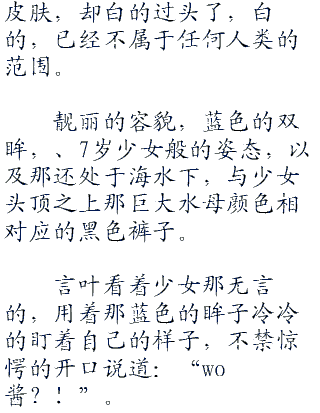 皮肤，却白的过头了，白
的，已经不属于任何人类的
范围。
靓丽的容貌，蓝色的双
眸，、7岁少女般的姿态，以
及那还处于海水下，与少女
头顶之上那巨大水母颜色相
对应的黑色裤子。
言叶看着少女那无言
的，用着那蓝色的眸子冷冷
的盯着自己的样子，不禁惊
愕的开口说道：“wo
酱？！”。